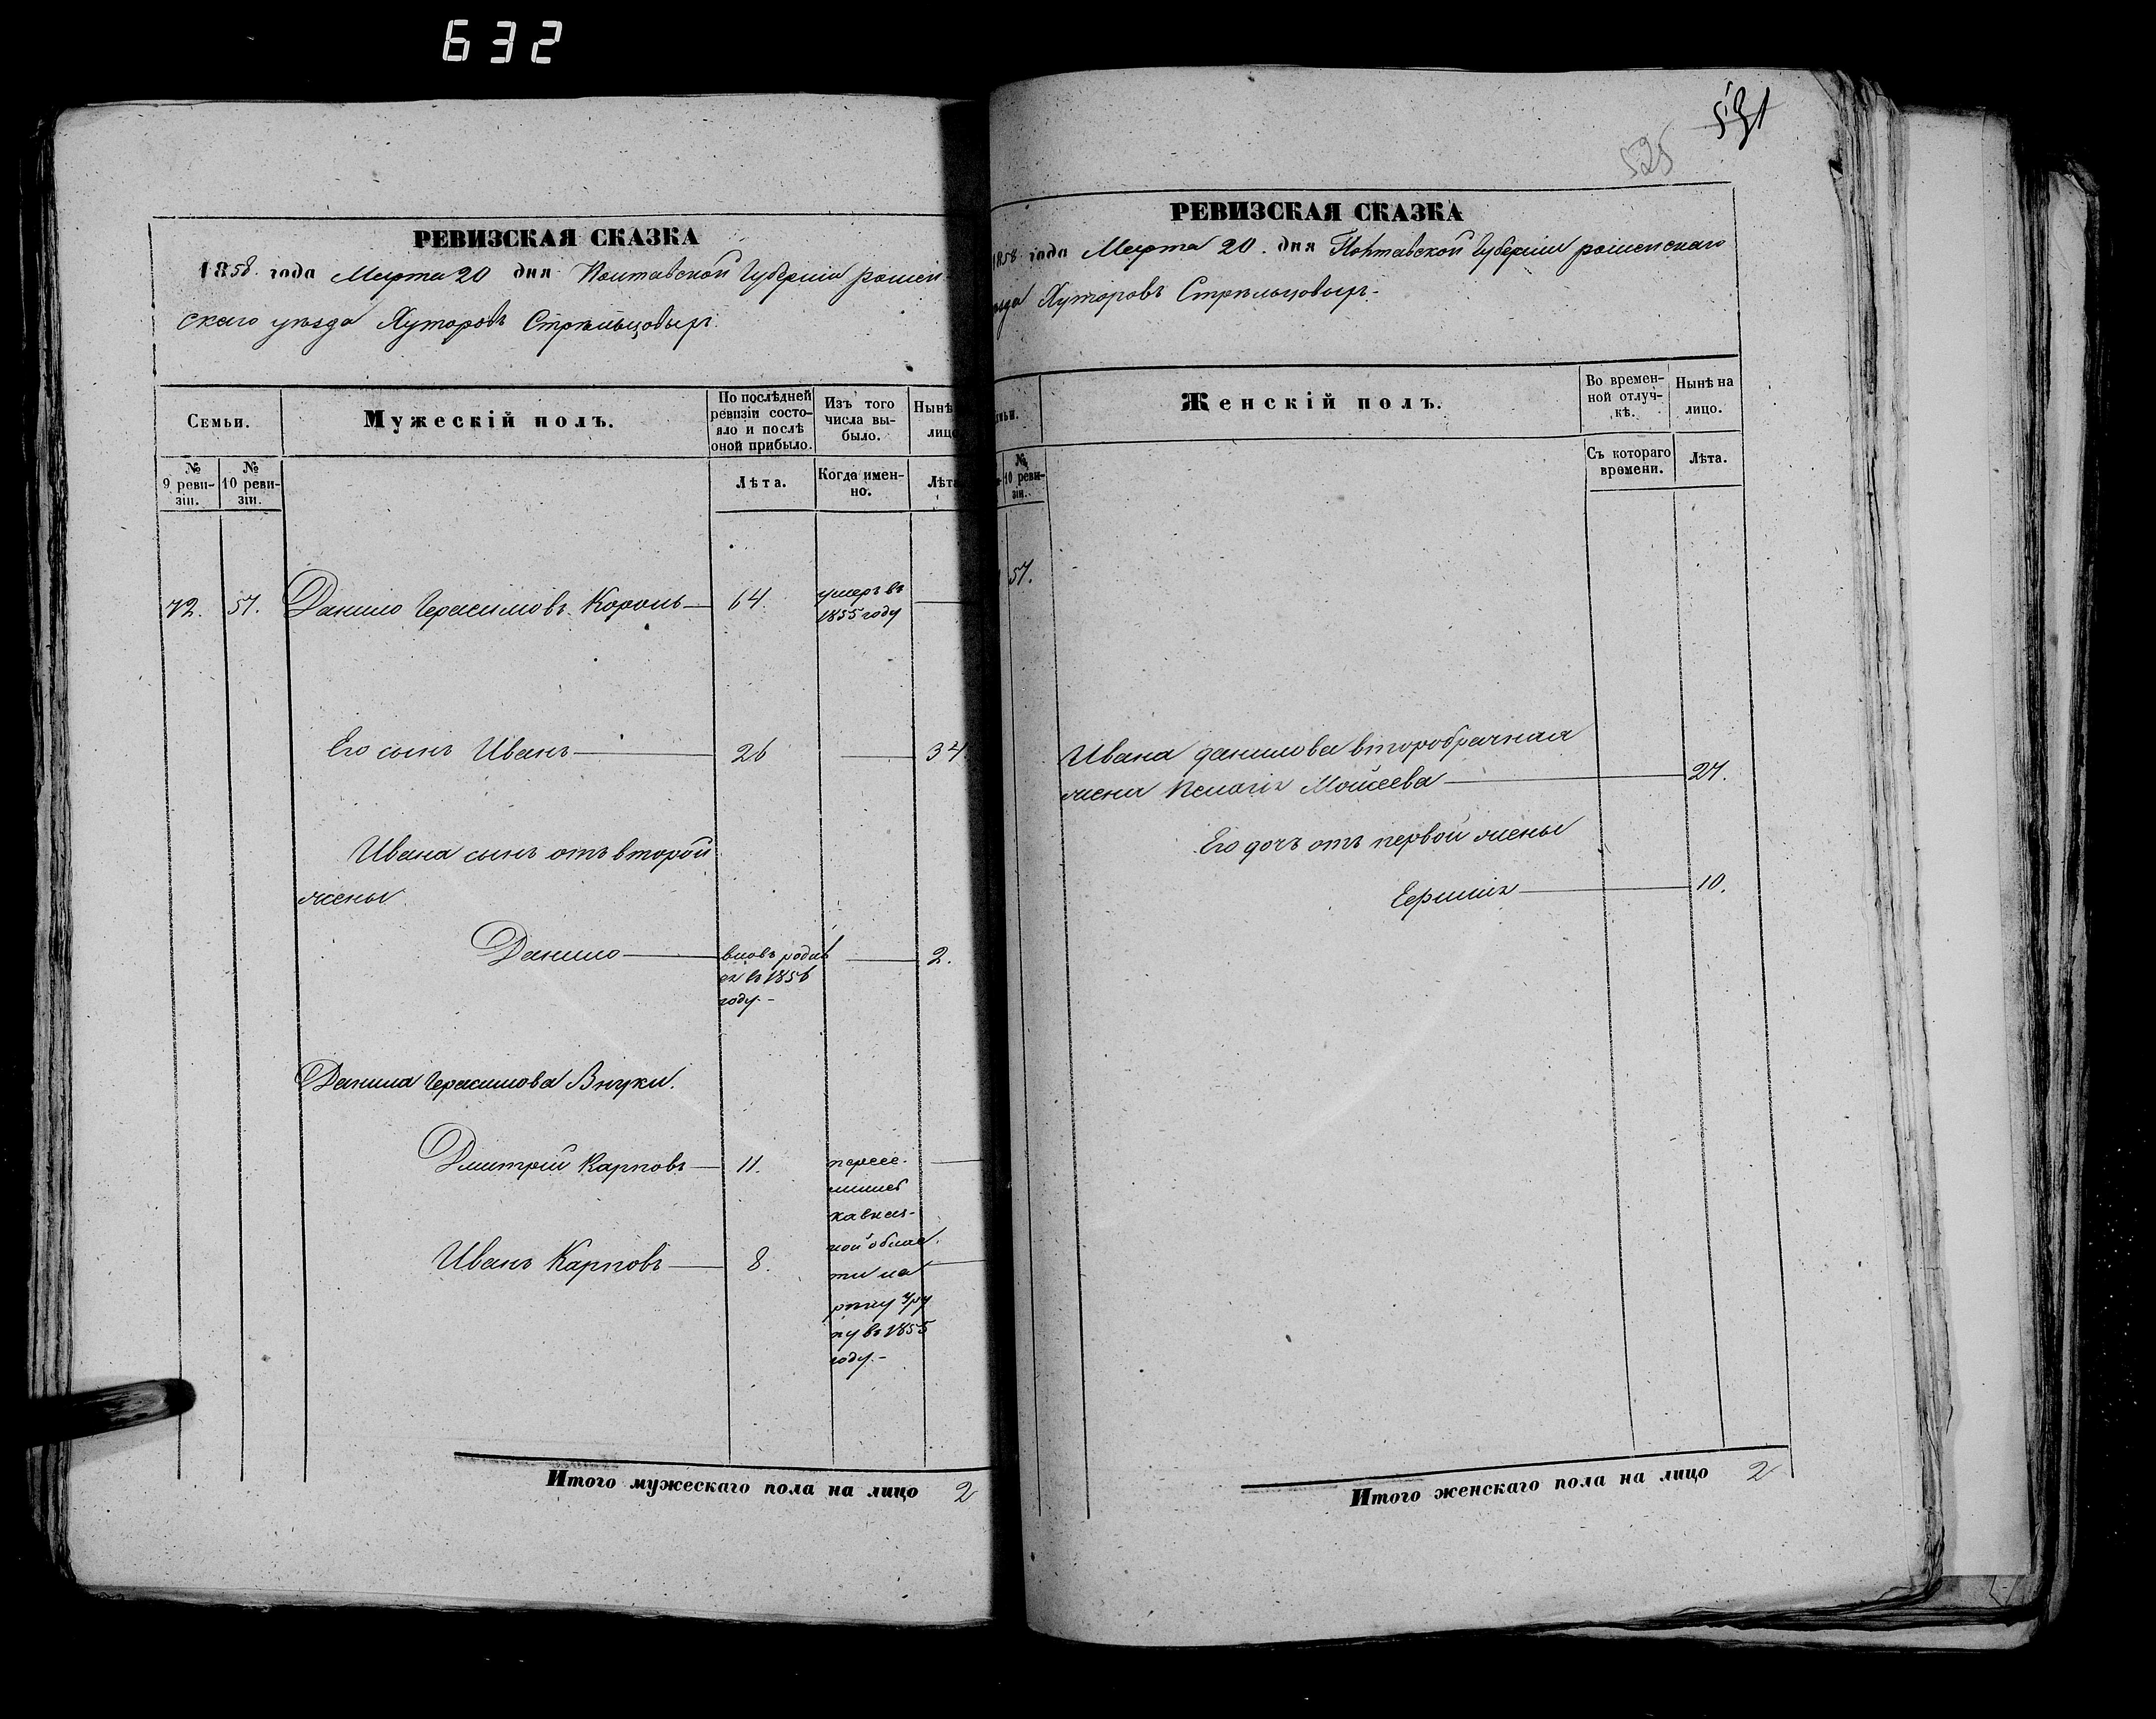 632
РЕВИЗСКАЯ СКАЗКА
1858. года Марта 20 дня Полтавской Губерніи ромен
скаго уѣзда Хуторовъ Стрѣльцовыхъ.
Семьи.
Мужескій полъ.
По послѣдней ревизіи состояло и послѣ оной прибыло.
Изъ того числа выбыло.
Нынѣ
лицо
№ 9 ревизіи.
№ 10 ревизіи.
Лѣта.
Когда именно.
Лѣта
72. 57. Данило Герасимовъ Король 64. умеръ въ
1855 году
Его сынъ Иванъ 26 34
Ивана сынъ отъ второй
жены
Данило вновь родил 2.
ся въ 1856
году.-
Данила Герасимова Внуки.
Дмитрій Карповъ 11. пересе-
Иванъ Карповъ 8. ной облас
ти на
рѣку Уру
пу въ 1855
году.-
Итого мужескаго пола на лицо 2
591
525
РЕВИЗСКАЯ СКАЗКА
1858 года Марта 20. дня Полтавской Губерніи роменскаго
ѣзда Хуторовъ Стрѣльцовыхъ.-
Женскій полъ.
Во временной отлучкѣ.
Нынѣ на лицо.
№ 10 ревизіи.
Съ котораго времени.
Лѣта.
57.
Ивана данилова второбрачная
жена Пелагія Моисеева 27.
Его дочь отъ первой жены
10.
Итого женскаго пола на лицо 2